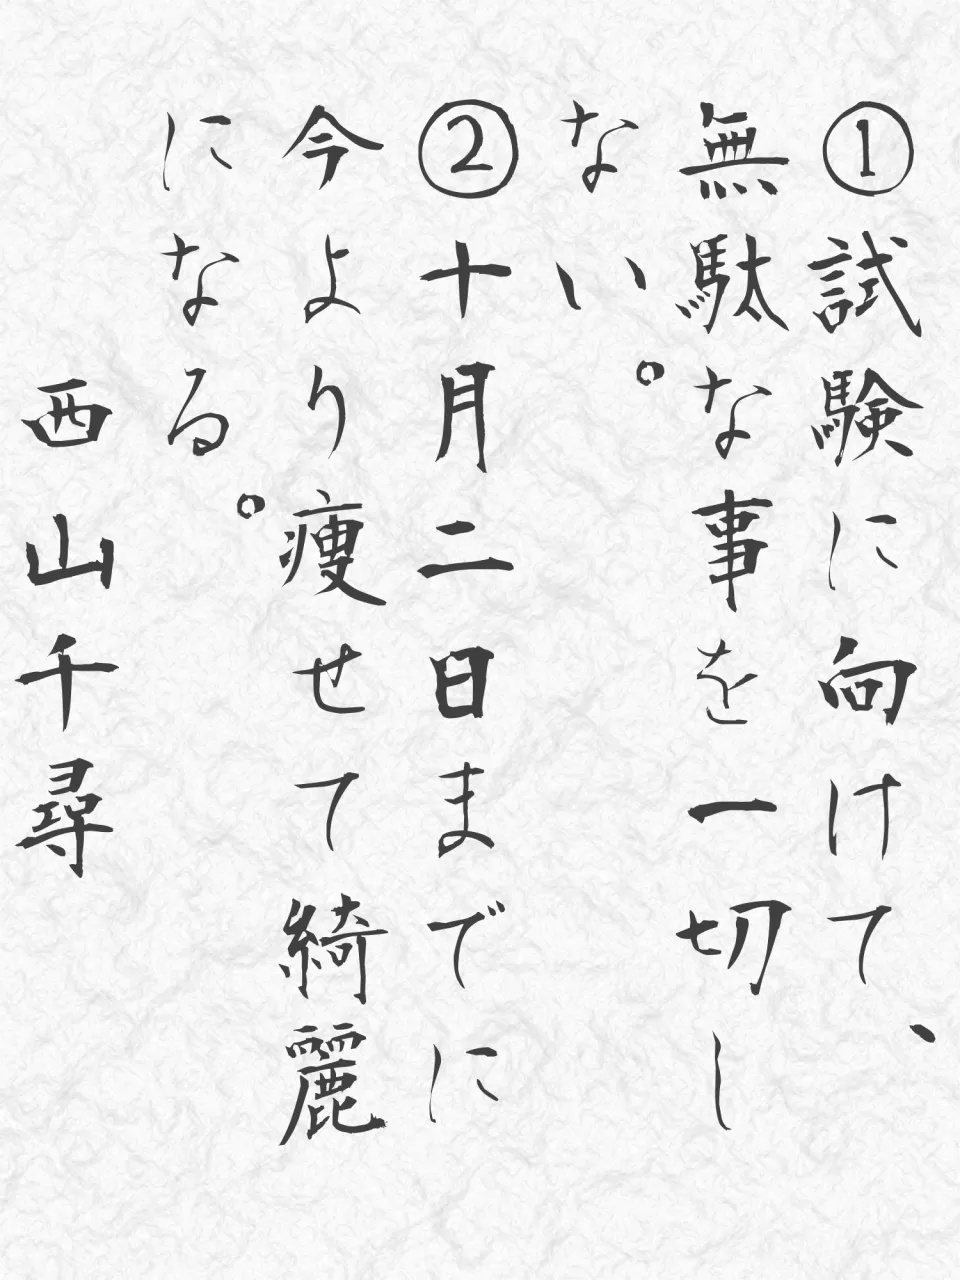 ①試験に向けて、
無駄な事を一切し
ない。
②十月二日までに
今より痩せて綺麗
になる。
西山千尋